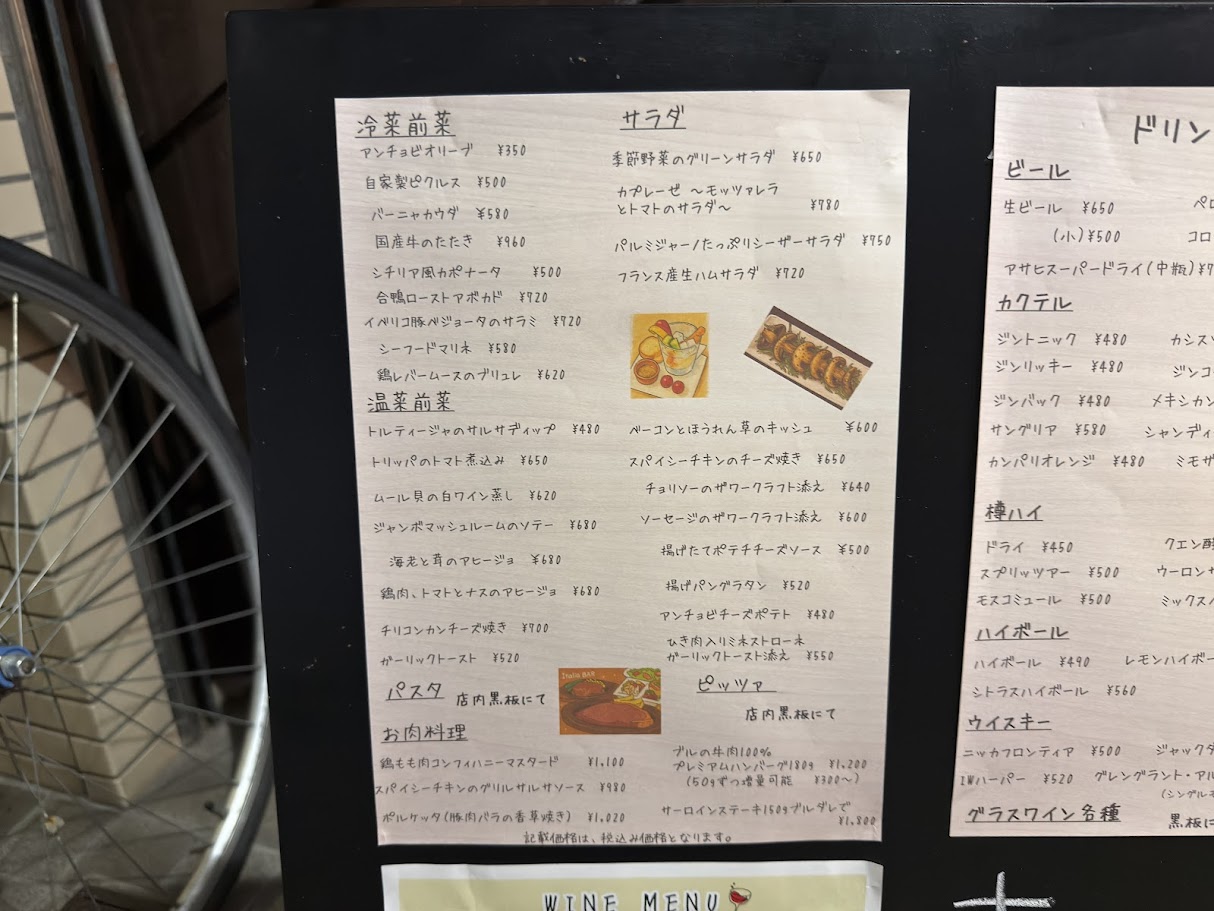 冷菜前菜
アンチョビオリーブ ¥350
自家製ピクルス ¥500
バーニャカウダ ¥580
国産牛のたたき ¥960
シチリア風カポナータ ¥500
合鴨ローストアボカド ¥720
イベリコ豚ベジョータのサラミ ¥720
シーフードマリネ ¥580
鶏レバームースのブリュレ ¥620
サラダ
季節野菜のグリーンサラダ ¥650
カプレーゼ ～モッツァレラ
とトマトのサラダ～ ¥780
パルミジャーノたっぷりシーザーサラダ ¥750
フランス産生ハムサラダ ¥720
温菜前菜
トルティージャのサルサディップ ¥480
トリッパのトマト煮込み ¥650
ムール貝の白ワイン蒸し ¥620
ジャンボマッシュルームのソテー ¥680
海老と茸のアヒージョ ¥680
鶏肉、トマトとナスのアヒージョ ¥680
チリコンカンチーズ焼き ¥700
ガーリックトースト ¥520
ベーコンとほうれん草のキッシュ ¥600
スパイシーチキンのチーズ焼き ¥650
チョリソーのザワークラフト添え ¥640
ソーセージのザワークラフト添え ¥600
揚げたてポテチチーズソース ¥500
揚げパングラタン ¥520
アンチョビチーズポテト ¥480
ひき肉入りミネストローネ
ガーリックトースト添え ¥550
パスタ 店内黒板にて
Italia BAR
ピッツァ
店内黒板にて
お肉料理
鶏もも肉コンフィハニーマスタード ¥1,100
スパイシーチキンのグリルサルサソース ¥980
ポルケッタ(豚肉バラの香草焼き) ¥1,020
ブルの牛肉100%
プレミアムハンバーグ180g ¥1,200
(50gずつ増量可能 ¥300～)
サーロインステーキ150gブルダレで
¥1,800
記載価格は、税込み価格となります。
WINE MENU
ドリン
ビール
生ビール ¥650 ペロ
(小)¥500 コロ
アサヒスーパードライ(中瓶)¥7
カクテル
ジントニック ¥480 カシス
ジンリッキー ¥480 ジンコ
ジンバック ¥480 メキシカン
サングリア ¥580 シャンディ
カンパリオレンジ ¥480 ミモザ
樽ハイ
ドライ ¥450 クエン酸
スプリッツアー ¥500 ウーロン
モスコミュール ¥500 ミックス
ハイボール
ハイボール ¥490 レモンハイボー
シトラスハイボール ¥560
ウイスキー
ニッカフロンティア ¥500 ジャックダ
IWハーパー ¥520 グレングラント・アル
(シングルモ
グラスワイン各種 黒板に